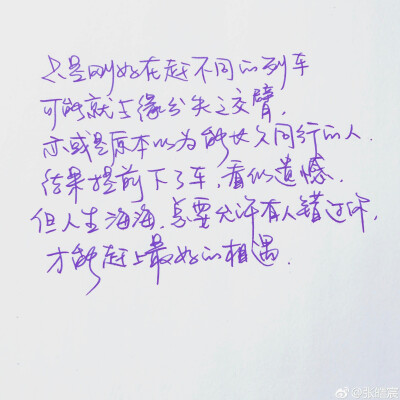 只是刚好在赶不同的列车
可能就与缘分失之交臂,
亦或是原本以为能长久同行的人.
结果提前下了车,看似遗憾.
但人生海海,总要允许有人错过你,
才能赶上最好的相遇.
@张皓宸